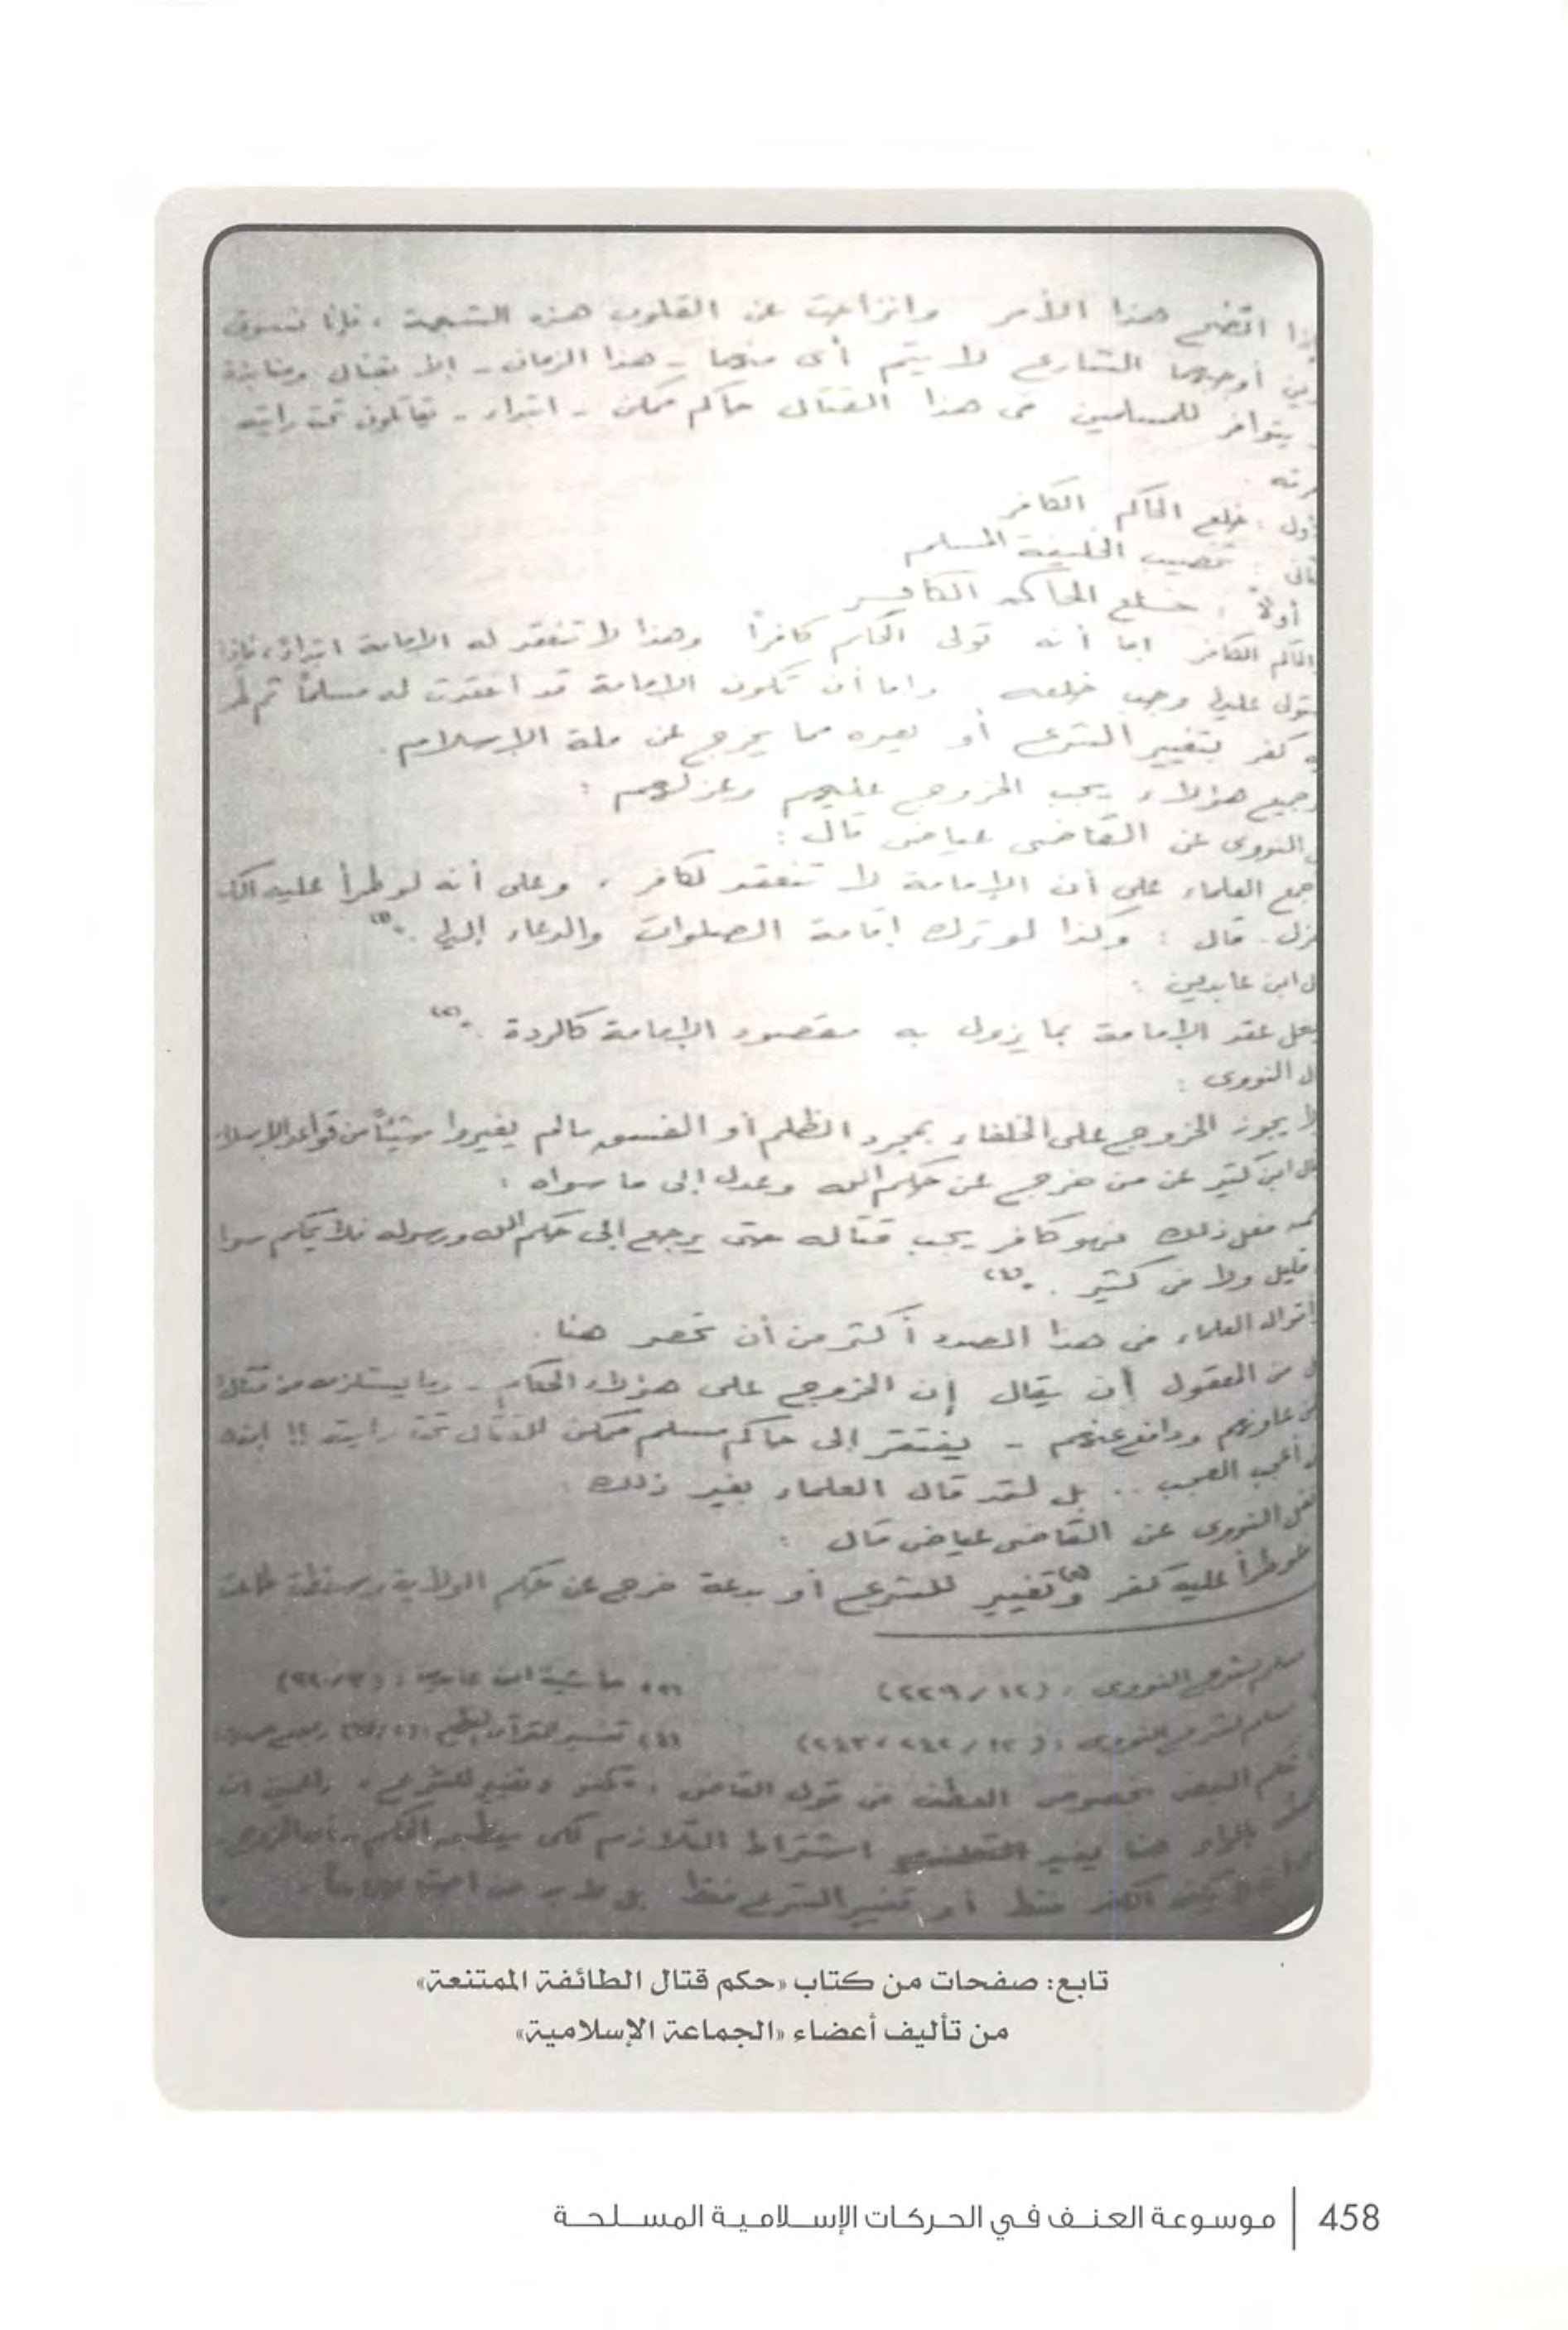 اتضح هذا الأمر وانزاحت عن القلوب هذه الشبهة ، فإنا نسوق
أوجبهما الشارع لا يتم أى منهما - هذا الزمان - إلا بقتال ومنابذة
يتوافر للمسلمين فى هذا القتال حاكم ممكن - ابتداء - يقاتلون تحت رايته
خلع الحاكم الكافر
تنصيب الخليفة المسلم
أولاً : خلع الحاكم الكافر
الحاكم الكافر إما أنه تولى الحكم كافراً وهذا لا تنعقد له الإمامة ابتداءً ، فإذا
وجب خلعه . وإما أن تكون الإمامة قد انعقدت له مسلماً ثم
كفر بتغيير الشرع أو بغيره مما يخرج عن ملة الإسلام .
وجميع هؤلاء يجب الخروج عليهم وعزلهم :
النووى عن القاضى عياض قال :
جمع العلماء على أن الإمامة لا تنعقد لكافر ، وعلى أنه لو طرأ عليه
قال : وكذا لو ترك إقامة الصلوات والدعاء إليها . (١)
ابن عابدين :
عقد الإمامة بما يزول به مقصود الإمامة كالردة . (٢)
النووى :
لا يجوز الخروج على الخلفاء بمجرد الظلم أو الفسق مالم يغيروا شيئاً من قواعد الإسلام
ابن كثير عن من خرج عن حكم الله وعدل إلى ما سواه :
فعل ذلك فهو كافر يجب قتاله حتى يرجع إلى حكم الله ورسوله فلا يحكم سوا
قليل ولا فى كثير . (٤)
أقوال العلماء فى هذا الصدد أكثر من أن تحصر هنا .
من المعقول أن يقال إن الخروج على هؤلاء الحكام - وما يستلزمه من قتال
عاونهم ودافع عنهم - يفتقر إلى حاكم مسلم ممكن للقتال تحت رايته !!
أعجب العجب .. بل لقد قال العلماء بغير ذلك :
النووى عن القاضى عياض قال :
طرأ عليه كفر وتغيير للشرع أو بدعة خرج عن حكم الولاية وسقطت طاعت
مسلم بشرح النووى : (١٢ / ٢٢٩)
حاشية ابن عابدين
مسلم بشرح النووى : (١٢ / ٢٤٢ ، ٢٤٣)
(٤) تفسير القرآن العظيم
البعض بخصوص العطف فى قول القاضى : كفر وتغيير للشرع
هنا يفيد اشتراط التلازم لكى
الكفر فقط أو تغيير الشرع فقط بل لابد من
تابع: صفحات من كتاب «حكم قتال الطائفة الممتنعة»
من تأليف أعضاء «الجماعة الإسلامية»
458 | موسوعة العنف في الحركات الإسلامية المسلحة